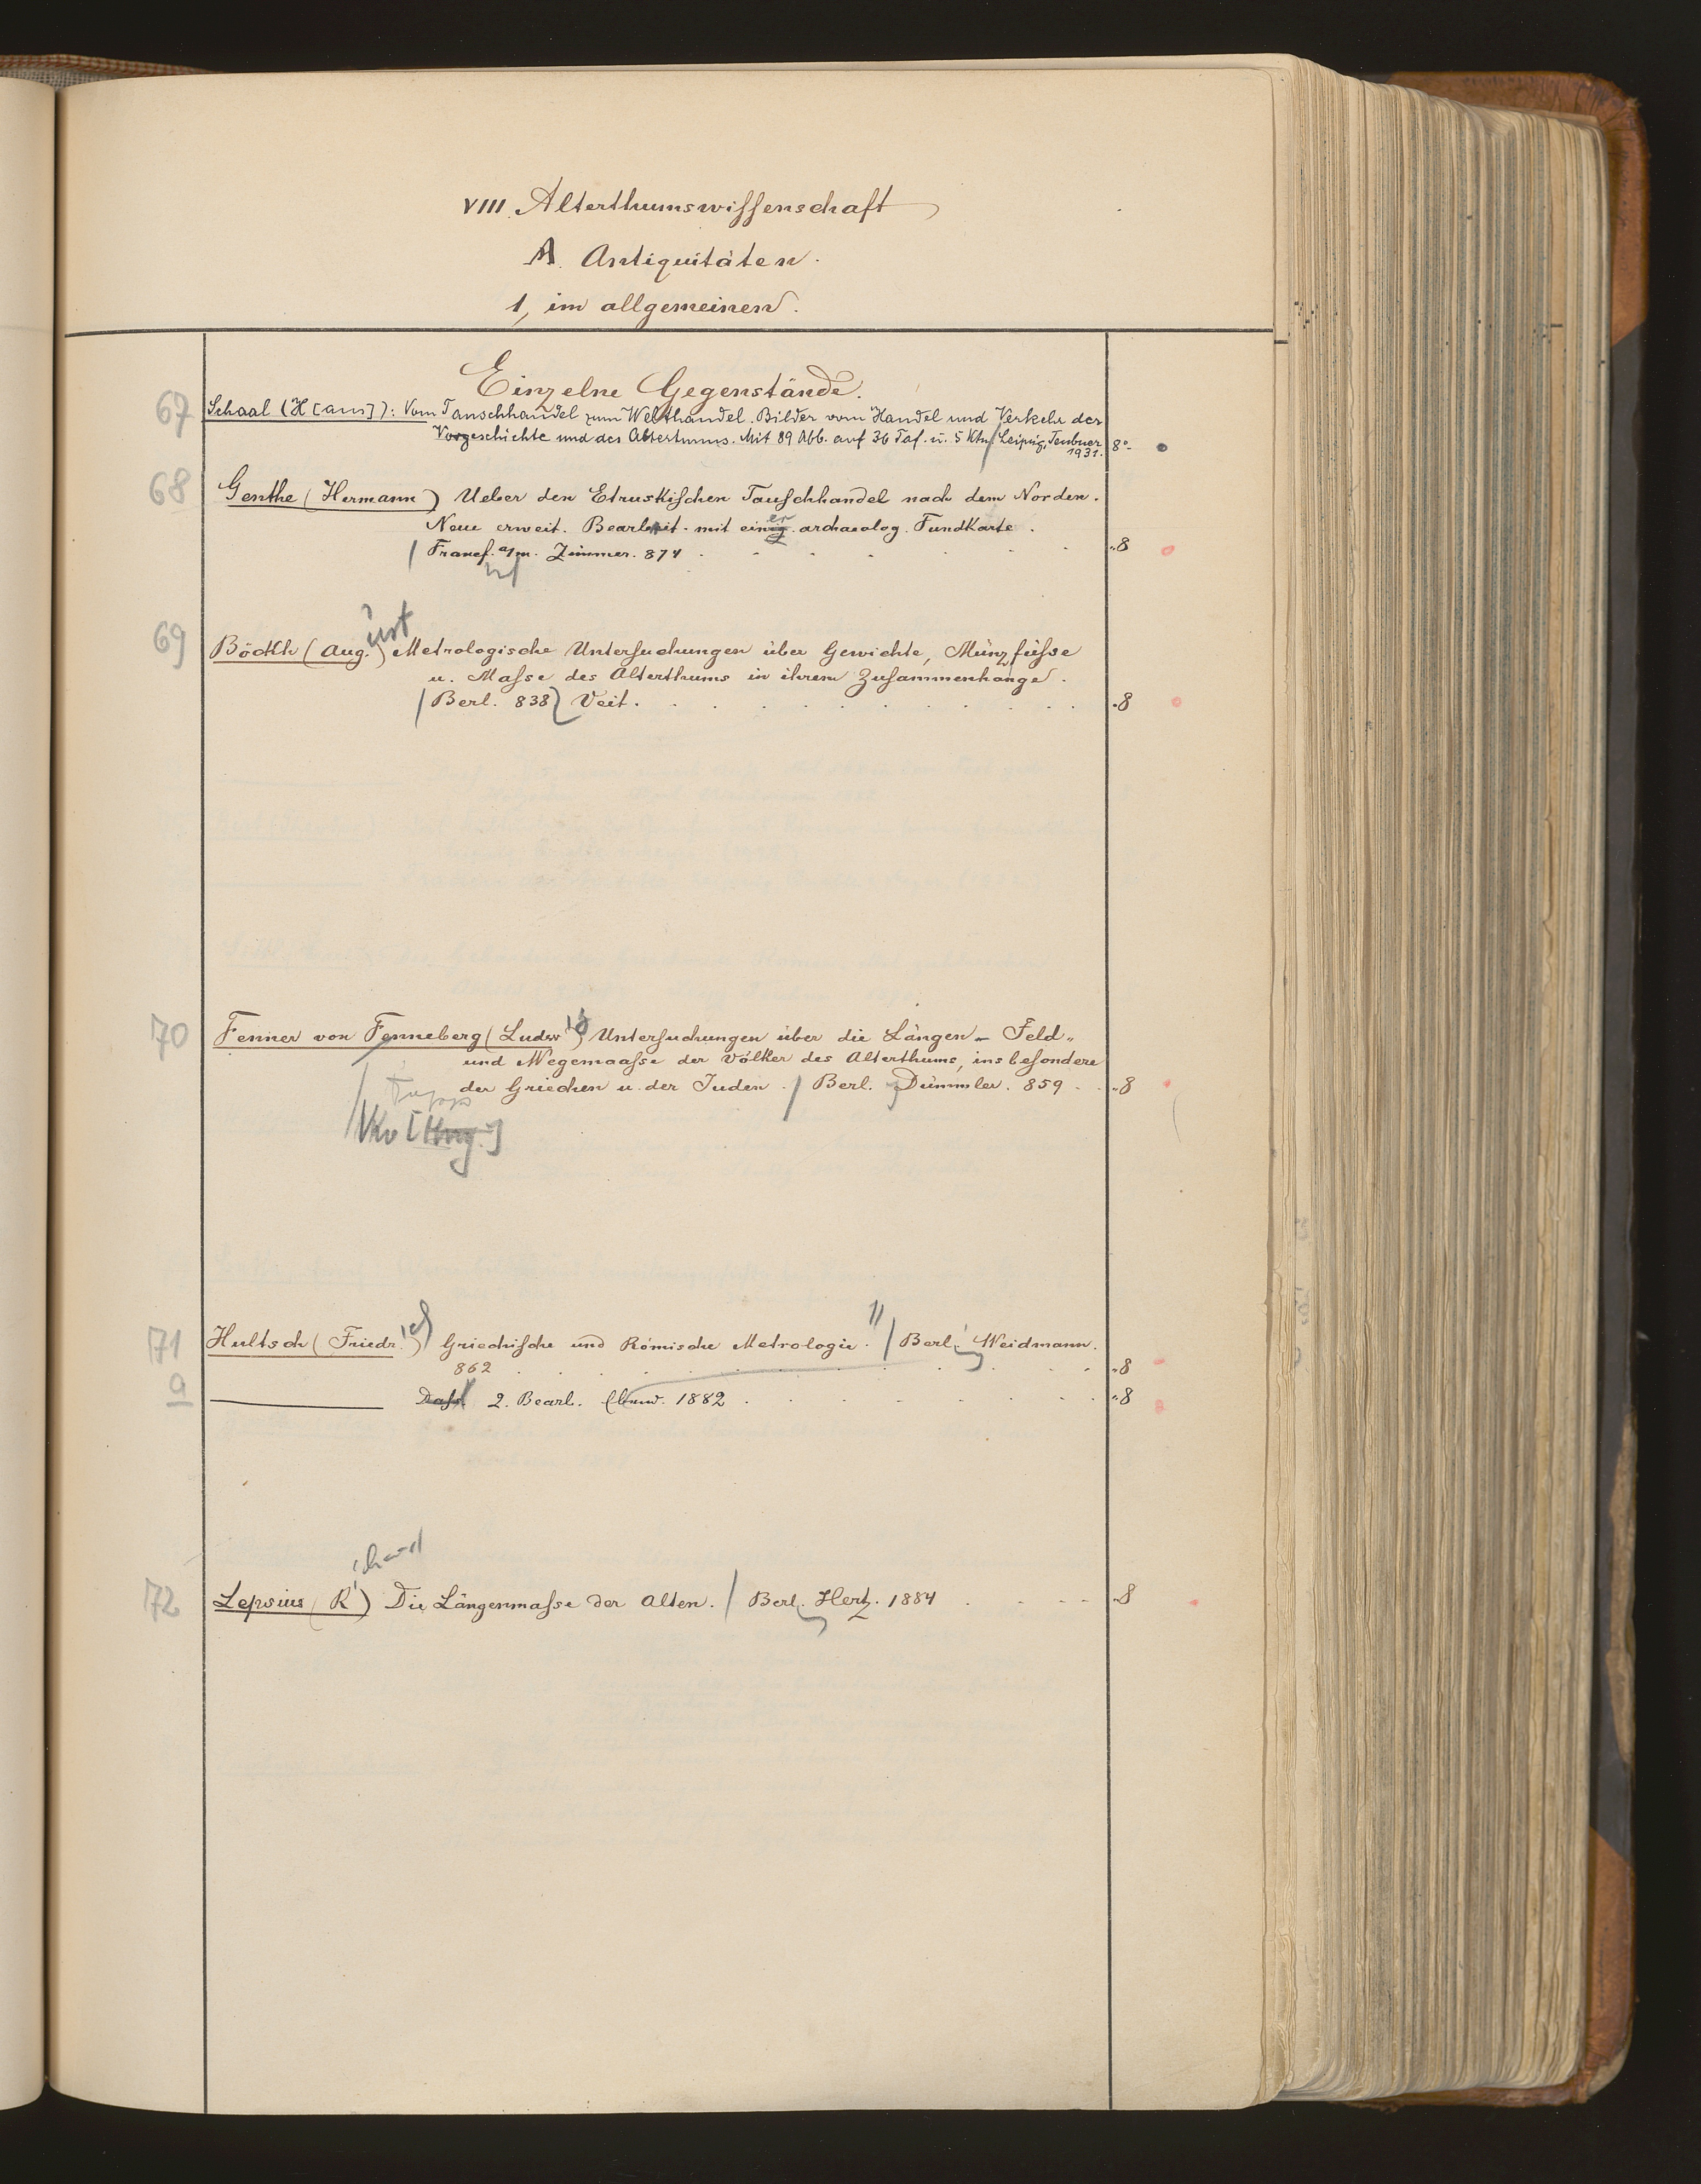 VIII. Alterthumswissenschaft
A. Antiquitäten.
1, im allgemeinen.
Einzelne Gegenstände.
67 Schaal (H[ans]): Vom Tauschhandel zum Welthandel. Bilder vom Handel und Verkehr der
Vorgeschichte und des Altertums. Mit 89 Abb. auf 36 Taf. u. 5 Ktn. Leipzig, Teubner 8°
1931.
68 Genthe (Hermann) Ueber den Etruskischen Tauschhandel nach dem Norden.
Neue erweit. Bearbeit. mit einer archaeolog. Fundkarte.
Francf. a/m. Zimmer. 874 . . . . . . "8
69 Böckh (Aug.ust) Metrologische Untersuchungen über Gewichte, Münzfüsse
u. Masse des Alterthums in ihrem Zusammenhange.
Berl. 838 Veit. . . . . . . . . . . "8
70 Fenner von Fenneberg (Ludwig) Untersuchungen über die Längen- Feld-
und Wegemaasse der Völker des Alterthums, insbesondere
der Griechen u. der Juden. / Berl. Dümmler. 859 . . "8
71 Hultsch (Friedr.ich) Griechische und Römische Metrologie. / Berl. Weidmann.
862 . . . . . . . . . . "8
a Dass. 2. Bearb. Ebend. 1882 . . . . . . . "8
72 Lepsius (Richard) Die Längenmasse der Alten. / Berl. Hertz. 1884 . . . . "8